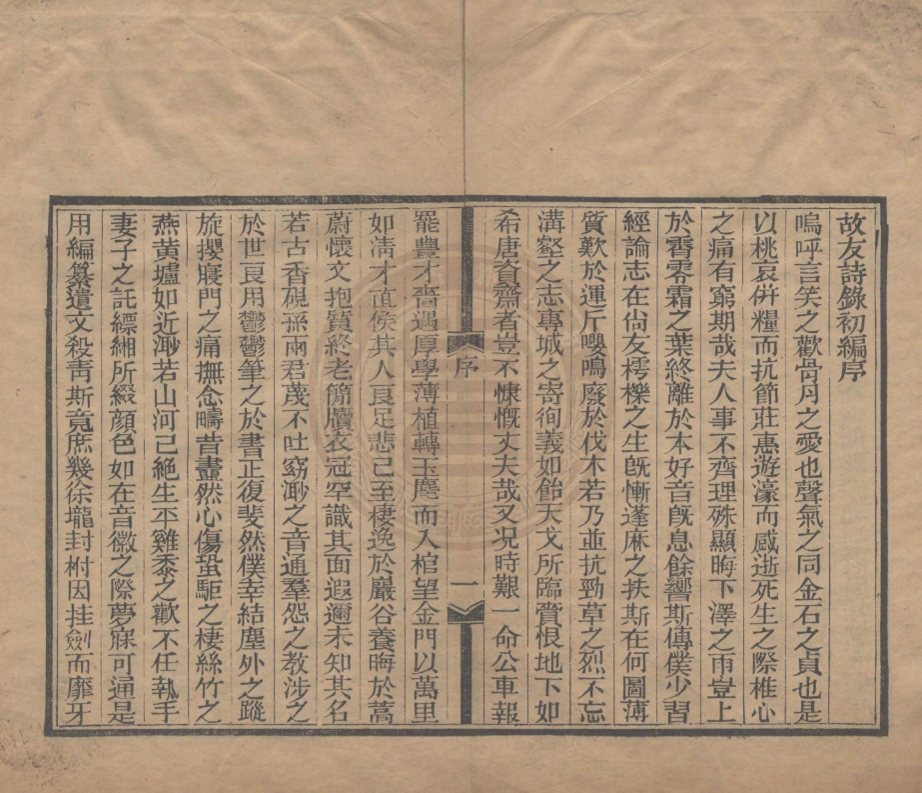 故友詩錄初編序
嗚呼言笑之歡骨肉之愛也聲氣之同金石之貞也是
以桃哀倂糧而抗節莊惠遊濠而感逝死生之際椎心
之痛有窮期哉夫人事不齊理殊顯晦下澤之雨豈上
於霄零霜之葉終離於本好音旣息餘響斯傳僕少習
經論志在尙友樗櫟之生旣慚蓬麻之扶斯在何圖薄
質歎於運斤嚶鳴廢於伐木若乃並抗勁草之烈不忘
溝壑之志專城之寄徇義如飴天戈所臨賫恨地下如
希唐資齋者豈不慷慨丈夫哉又况時艱一命公車報
序
一
罷豐才嗇遇厚學薄植轉玉麈而入棺望金門以萬里
如淸才直侯其人良足悲已至棲逸於巖谷養晦於蒿
蔚懷文抱質終老簡牘衣冠罕識其面遐邇未知其名
若古香硯孫兩君蔑不吐窈渺之音通羣怨之教涉之
於世良用鬱鬱筆之於書正復斐然僕幸結塵外之蹤
旋攖寢門之痛撫念疇昔盡然心傷蛩駏之棲絲竹之
燕黃壚如近渺若山河已絕生平雞黍之歡不任執手
妻子之託縹緗所綴顏色如在音徽之際夢寐可通是
用編纂遺文殺靑斯竟庶幾徐壠封樹因挂劍而靡牙